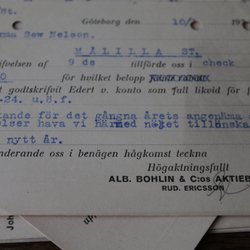 /St.
Göteborg den 10/
rma Sew Nelson.
MÅLILLA ST.
ifvelsen af 9 ds tillförde oss i check
0 för hvilket belopp
godtskrifvit Edert v. konto som full likvid för f
-24. u.ö.f.
ande för det gångna årets angenäma
elser hava vi härmed nöjet tillönska
nytt år.
nderande oss i benägen hågkomst teckna
Högaktningsfullt
ALB. BOHLIN & C:os AKTIEB
RUD. ERICSSON